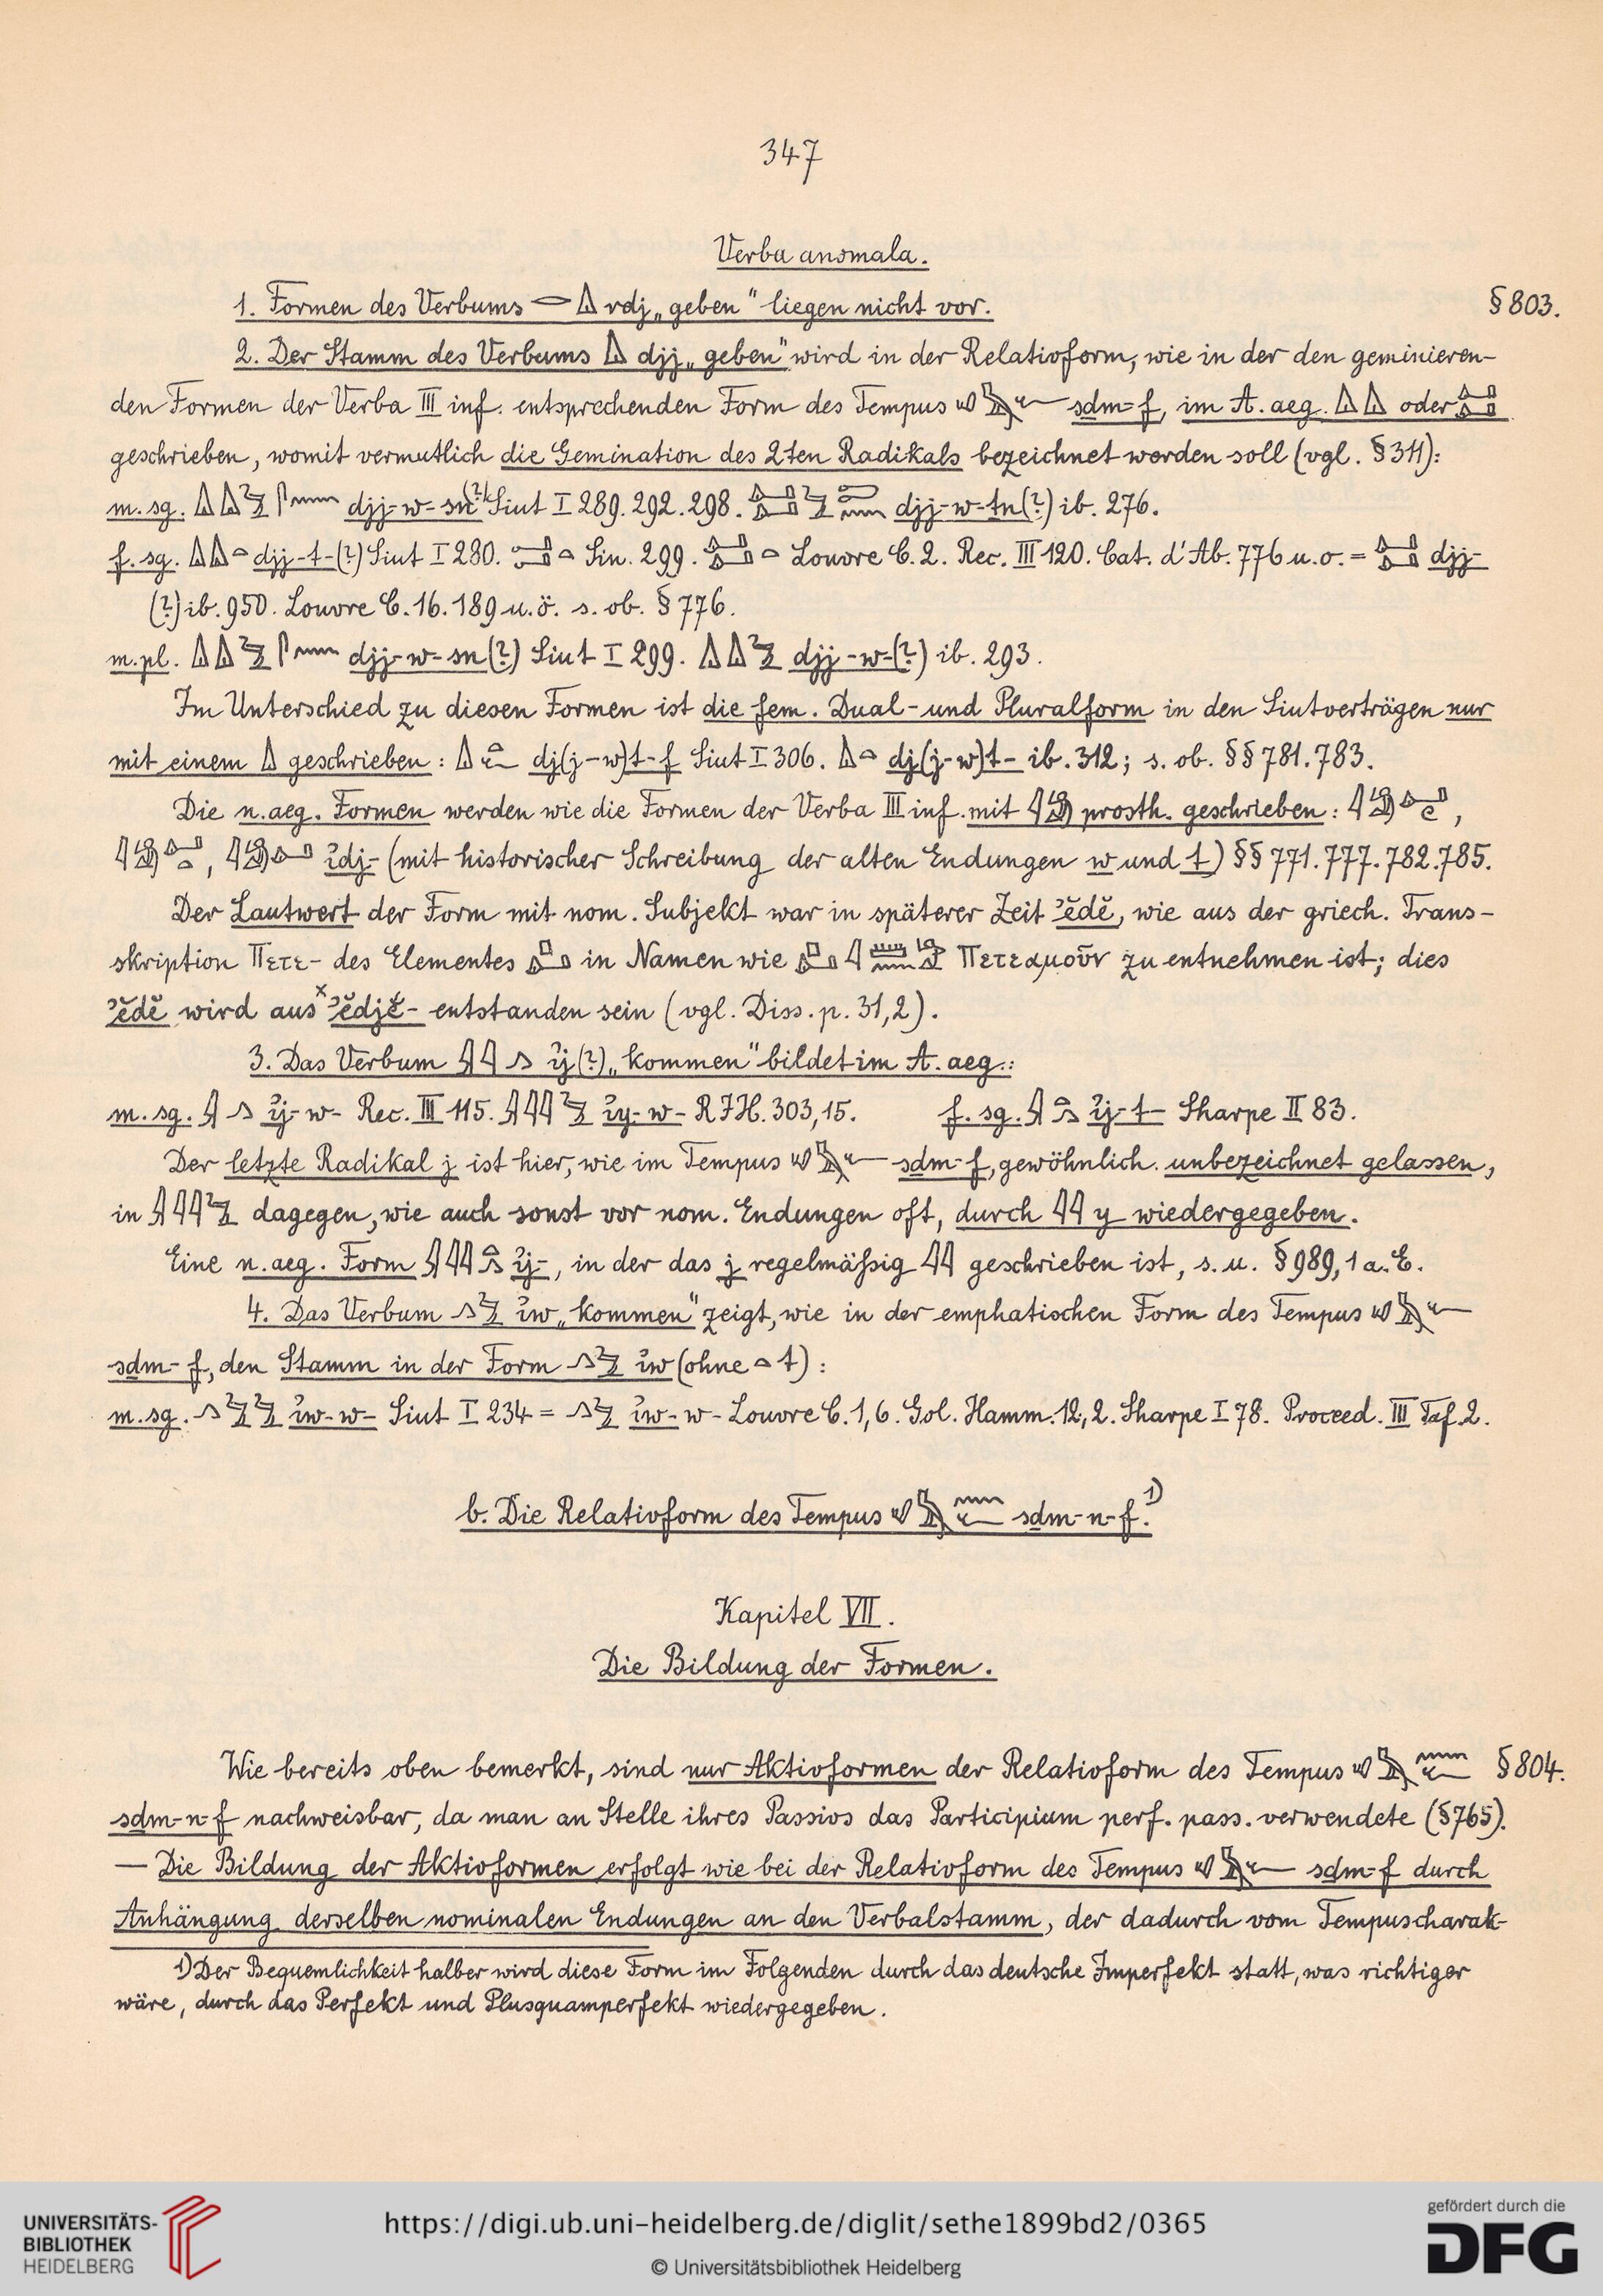 347
Verba anomala.
1. Formen des Verbums 𓂋𓏙 rdj „geben“ liegen nicht vor. § 803.
2. Der Stamm des Verbums 𓏙 djj „geben“ wird in der Relativform, wie in der den geminieren-
den Formen der Verba III inf. entsprechenden Form des Tempus sdm-f, im A. aeg. 𓏙𓏙 oder
geschrieben, womit vermutlich die Gemination des 2ten Radikals bezeichnet werden soll (vgl. § 311):
m. sg. 𓏙𓏙 djj-w-sn (?) Siut I 289. 292. 298. djj-w-tn (?) ib. 276.
f. sg. 𓏙𓏙𓏏 djj-t-(?) Siut I 280. Sin. 299. Louvre C. 2. Rec. III 120. Cat. d'Ab. 776 u. o. = djj-
(?) ib. 950. Louvre C. 16. 189 u. ö. s. ob. § 776.
m. pl. 𓏙𓏙 djj-w-sn (?) Siut I 299. 𓏙𓏙 djj-w-(?) ib. 293.
Im Unterschied zu diesen Formen ist die fem. Dual- und Pluralform in den Siutverträgen nur
mit einem 𓏙 geschrieben: 𓏙𓏏𓆑 dj(j-w)t-f Siut I 306. 𓏙𓏏 dj(j-w)t- ib. 312; s. ob. §§ 781. 783.
Die n. aeg. Formen werden wie die Formen der Verba III inf. mit prosth. geschrieben: ,
, ꞽdj- (mit historischer Schreibung der alten Endungen w und t) §§ 771. 777. 782. 785.
Der Lautwert der Form mit nom. Subjekt war in späterer Zeit ʾĕdĕ, wie aus der griech. Trans-
skription Πετε- des Elementes in Namen wie Πετεαμοῦν zu entnehmen ist; dies
ʾĕdĕ wird aus ˣʾĕdjĕ- entstanden sein (vgl. Diss. p. 31,2).
3. Das Verbum 𓇋𓇋𓂻 ꞽj (?) „kommen“ bildet im A. aeg.:
m. sg. 𓇋𓂻 ꞽj-w- Rec. III 115. ꞽy-w- RJH. 303,15. f. sg. ꞽj-t- Sharpe II 83.
Der letzte Radikal j ist hier, wie im Tempus sdm-f, gewöhnlich unbezeichnet gelassen,
in dagegen, wie auch sonst vor nom. Endungen oft, durch 𓇋𓇋 y wiedergegeben.
Eine n. aeg. Form ꞽj-, in der das j regelmäßig 𓇋𓇋 geschrieben ist, s. u. § 989, 1 a. E.
4. Das Verbum 𓂻𓅱 ꞽw „kommen“ zeigt, wie in der emphatischen Form des Tempus
sdm-f, den Stamm in der Form 𓂻𓅱 ꞽw (ohne 𓏏 t):
m. sg. 𓂻𓅱𓅱 ꞽw-w- Siut I 234 = 𓂻𓅱 ꞽw-w- Louvre C. 1,6. Gol. Hamm. 12,2. Sharpe I 78. Proceed. III Taf. 2.
b. Die Relativform des Tempus sdm-n-f. 1)
Kapitel VII.
Die Bildung der Formen.
Wie bereits oben bemerkt, sind nur Aktivformen der Relativform des Tempus § 804.
sdm-n-f nachweisbar, da man an Stelle ihres Passivs das Participium perf. pass. verwendete (§ 765).
— Die Bildung der Aktivformen erfolgt wie bei der Relativform des Tempus sdm-f durch
Anhängung derselben nominalen Endungen an den Verbalstamm, der dadurch vom Tempuscharak-
1) Der Bequemlichkeit halber wird diese Form im Folgenden durch das deutsche Imperfekt statt, was richtiger
wäre, durch das Perfekt und Plusquamperfekt wiedergegeben.
UNIVERSITÄTS-
BIBLIOTHEK
HEIDELBERG
https://digi.ub.uni-heidelberg.de/diglit/sethe1899bd2/0365
© Universitätsbibliothek Heidelberg
gefördert durch die
DFG